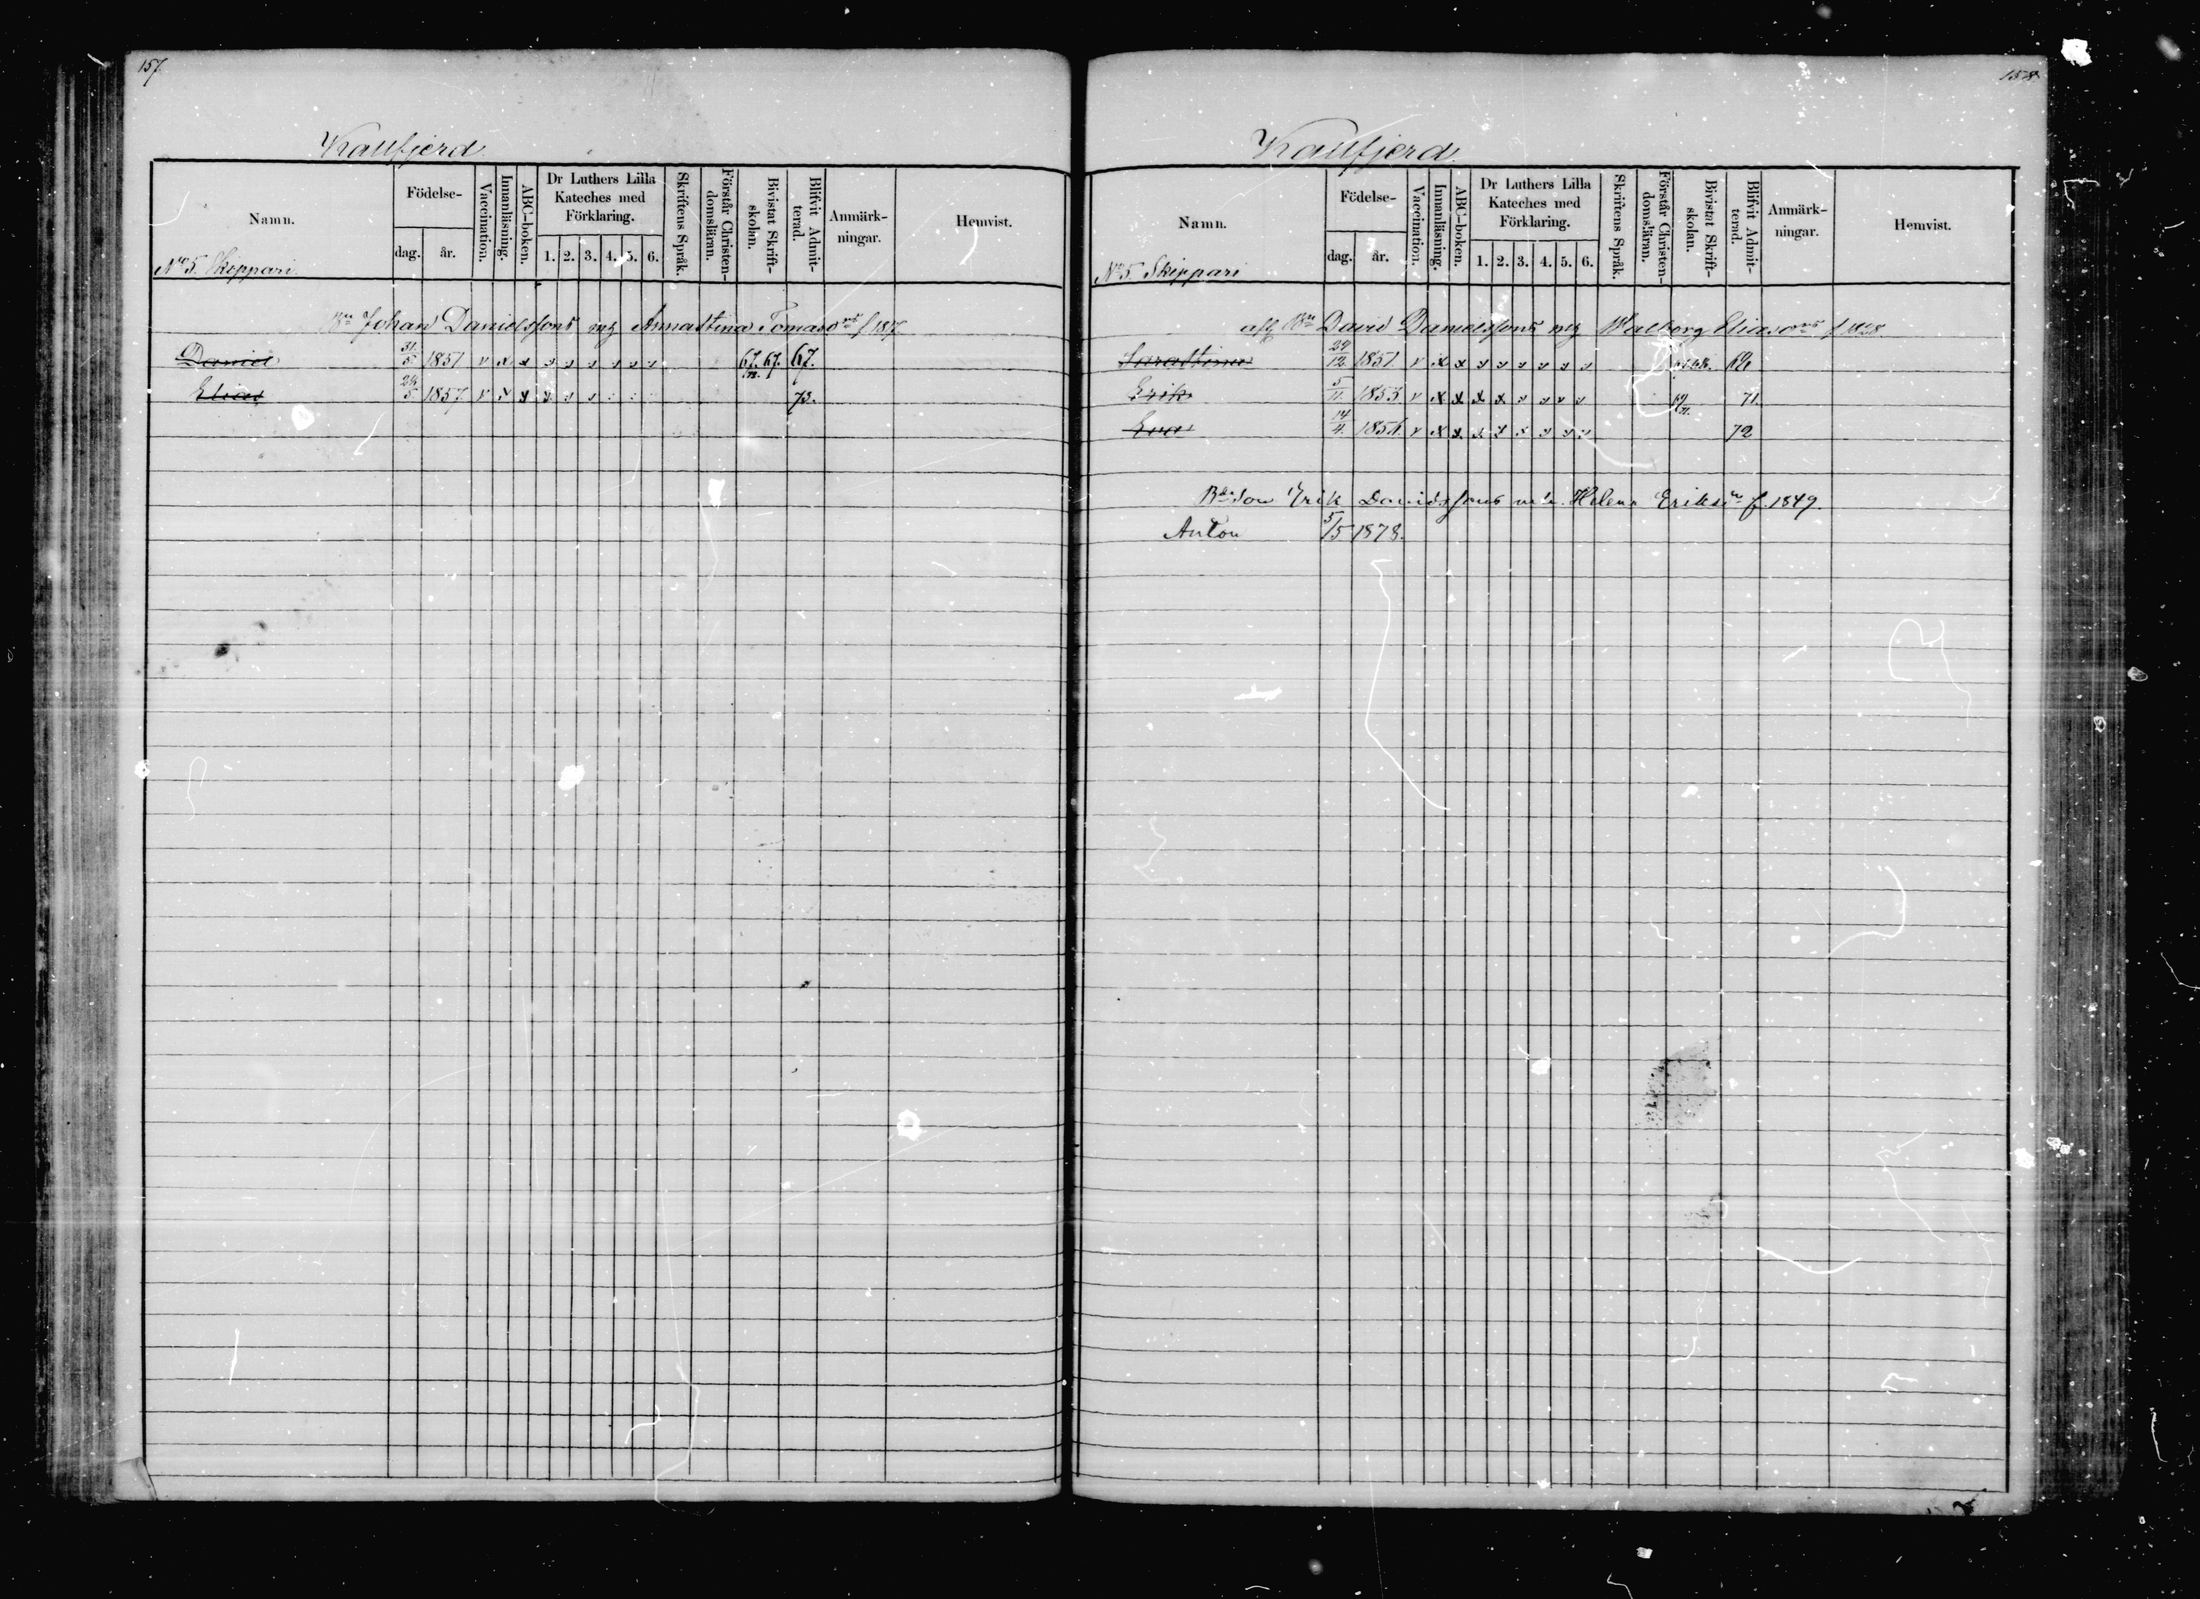 157
Kallfjerd
Namn.
Födelse-
dag. år.
Vaccination.
Innanläsning.
ABC-boken.
Dr Luthers Lilla Kateches med Förklaring.
1. 2. 3. 4. 5. 6.
Skriftens Språk.
Förstår Christen-domsläran.
Bivistat Skrift-skolan.
Blifvit Admit-terad.
Anmärk-ningar.
Hemvist.
No 5. Skippari
Bn Johan Danielssons m. h. Annastina Tomasdrs f. 1817
Daniel 31/5 1851 v x x 67. 67. 67.
Elias 24/5 1857 v x x 73.
158
Kallfjerd.
Namn.
Födelse-
dag. år.
Vaccination.
Innanläsning.
ABC-boken.
Dr Luthers Lilla Kateches med Förklaring.
1. 2. 3. 4. 5. 6.
Skriftens Språk.
Förstår Christen-domsläran.
Bivistat Skrift-skolan.
Blifvit Admit-terad.
Anmärk-ningar.
Hemvist.
No 5. Skippari
Bn David Danielssons Walborg f. 1828
24/12 1851. v x x
Erik 5/11 1853 v x x x x 71.
Eva 14/4 v x x 72
Bdeson Erik Davidssons Helena f. 1849.
Anton 5/5 1878.